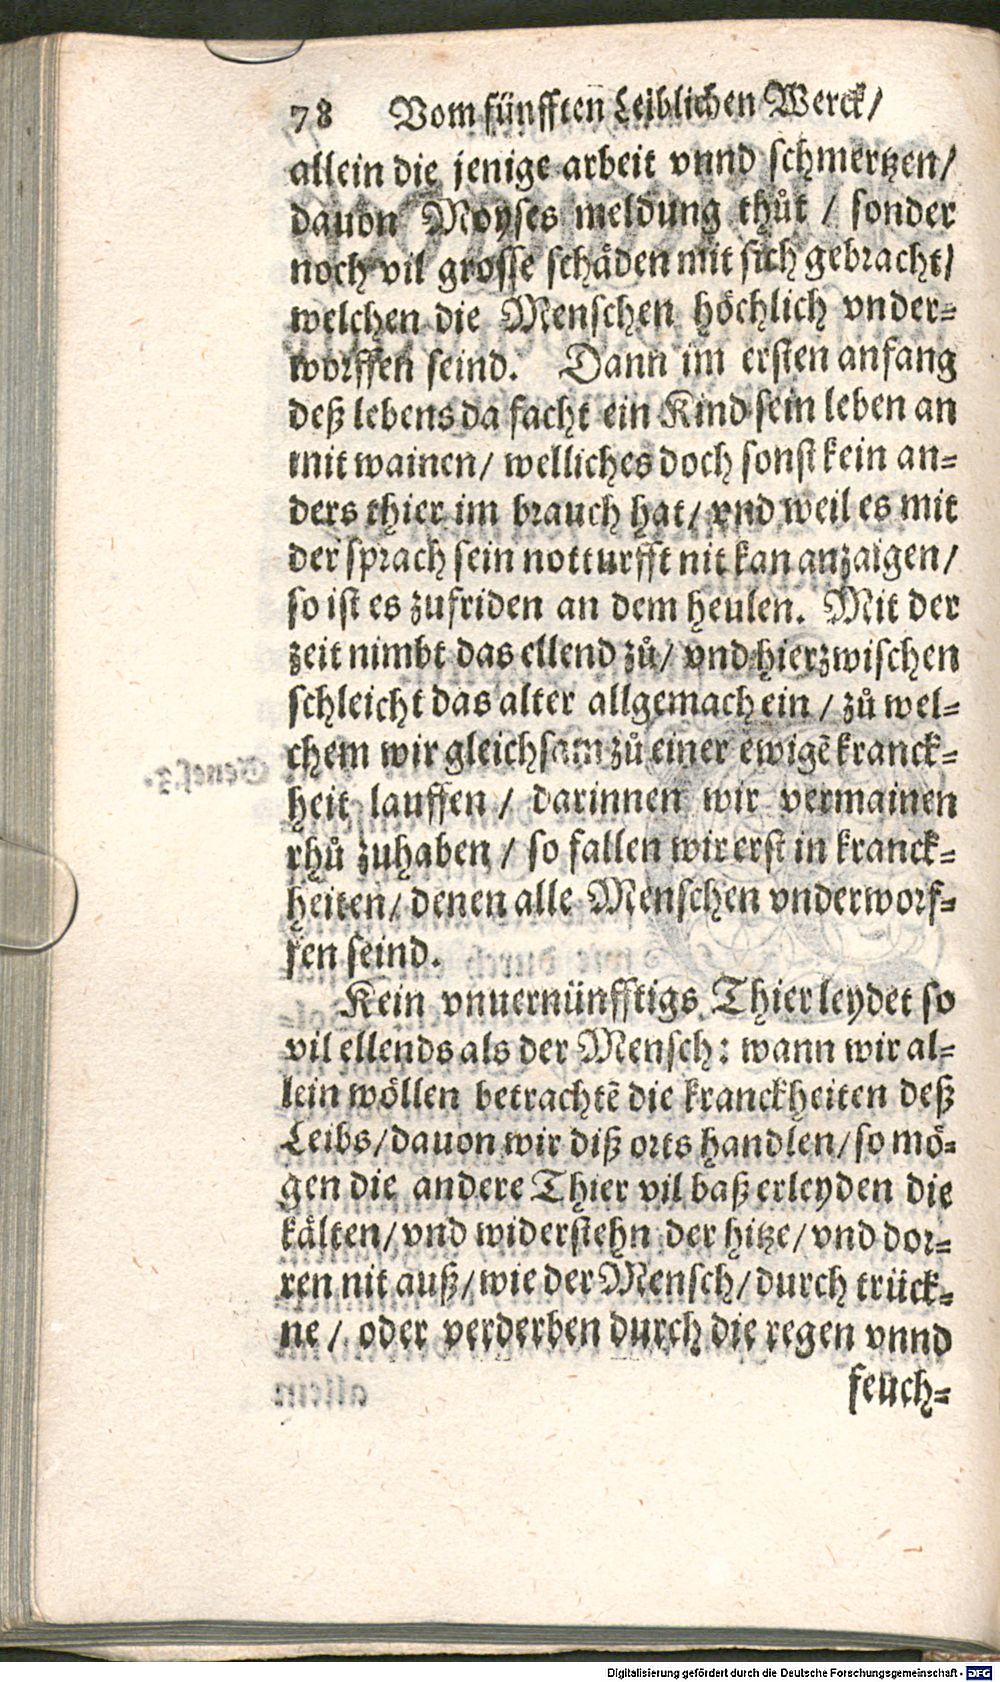 78 Vom fünfften Leiblichen Werck/
allein die jenige arbeit vnnd schmertzen/
dauon Moyses meldung thůt / sonder
noch vil grosse schäden mit sich gebracht/
welchen die Menschen höchlich vnder=
worffen seind. Dann im ersten anfang
deß lebens da facht ein Kind sein leben an
mit wainen/ welliches doch sonst kein an=
ders thier im brauch hat/ vnd weil es mit
der sprach sein notturfft nit kan anzaigen/
so ist es zufriden an dem heulen. Mit der
zeit nimbt das ellend zů/ vnd hierzwischen
schleicht das alter allgemach ein / zů wel=
chem wir gleichsam zů einer ewigē kranck=
heit lauffen / darinnen wir vermainen
rhů zuhaben / so fallen wir erst in kranck=
heiten/ denen alle Menschen vnderworf=
fen seind.
Kein vnuernünfftigs Thier leydet so
vil ellends als der Mensch: wann wir al=
lein wöllen betrachtē die kranckheiten deß
Leibs/dauon wir diß orts handlen/so mö=
gen die andere Thier vil baß erleyden die
kälten/vnd widerstehn der hitze/vnd dor=
ren nit auß/wie der Mensch/durch trück=
ne / oder verderben durch die regen vnnd
feuch=
Digitalisierung gefördert durch die Deutsche Forschungsgemeinschaft - DFG